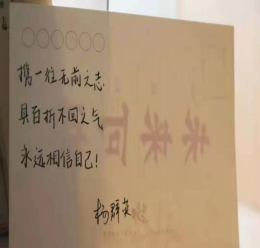 携一往无前之志
具百折不回之气
永远相信自己！
杨群英